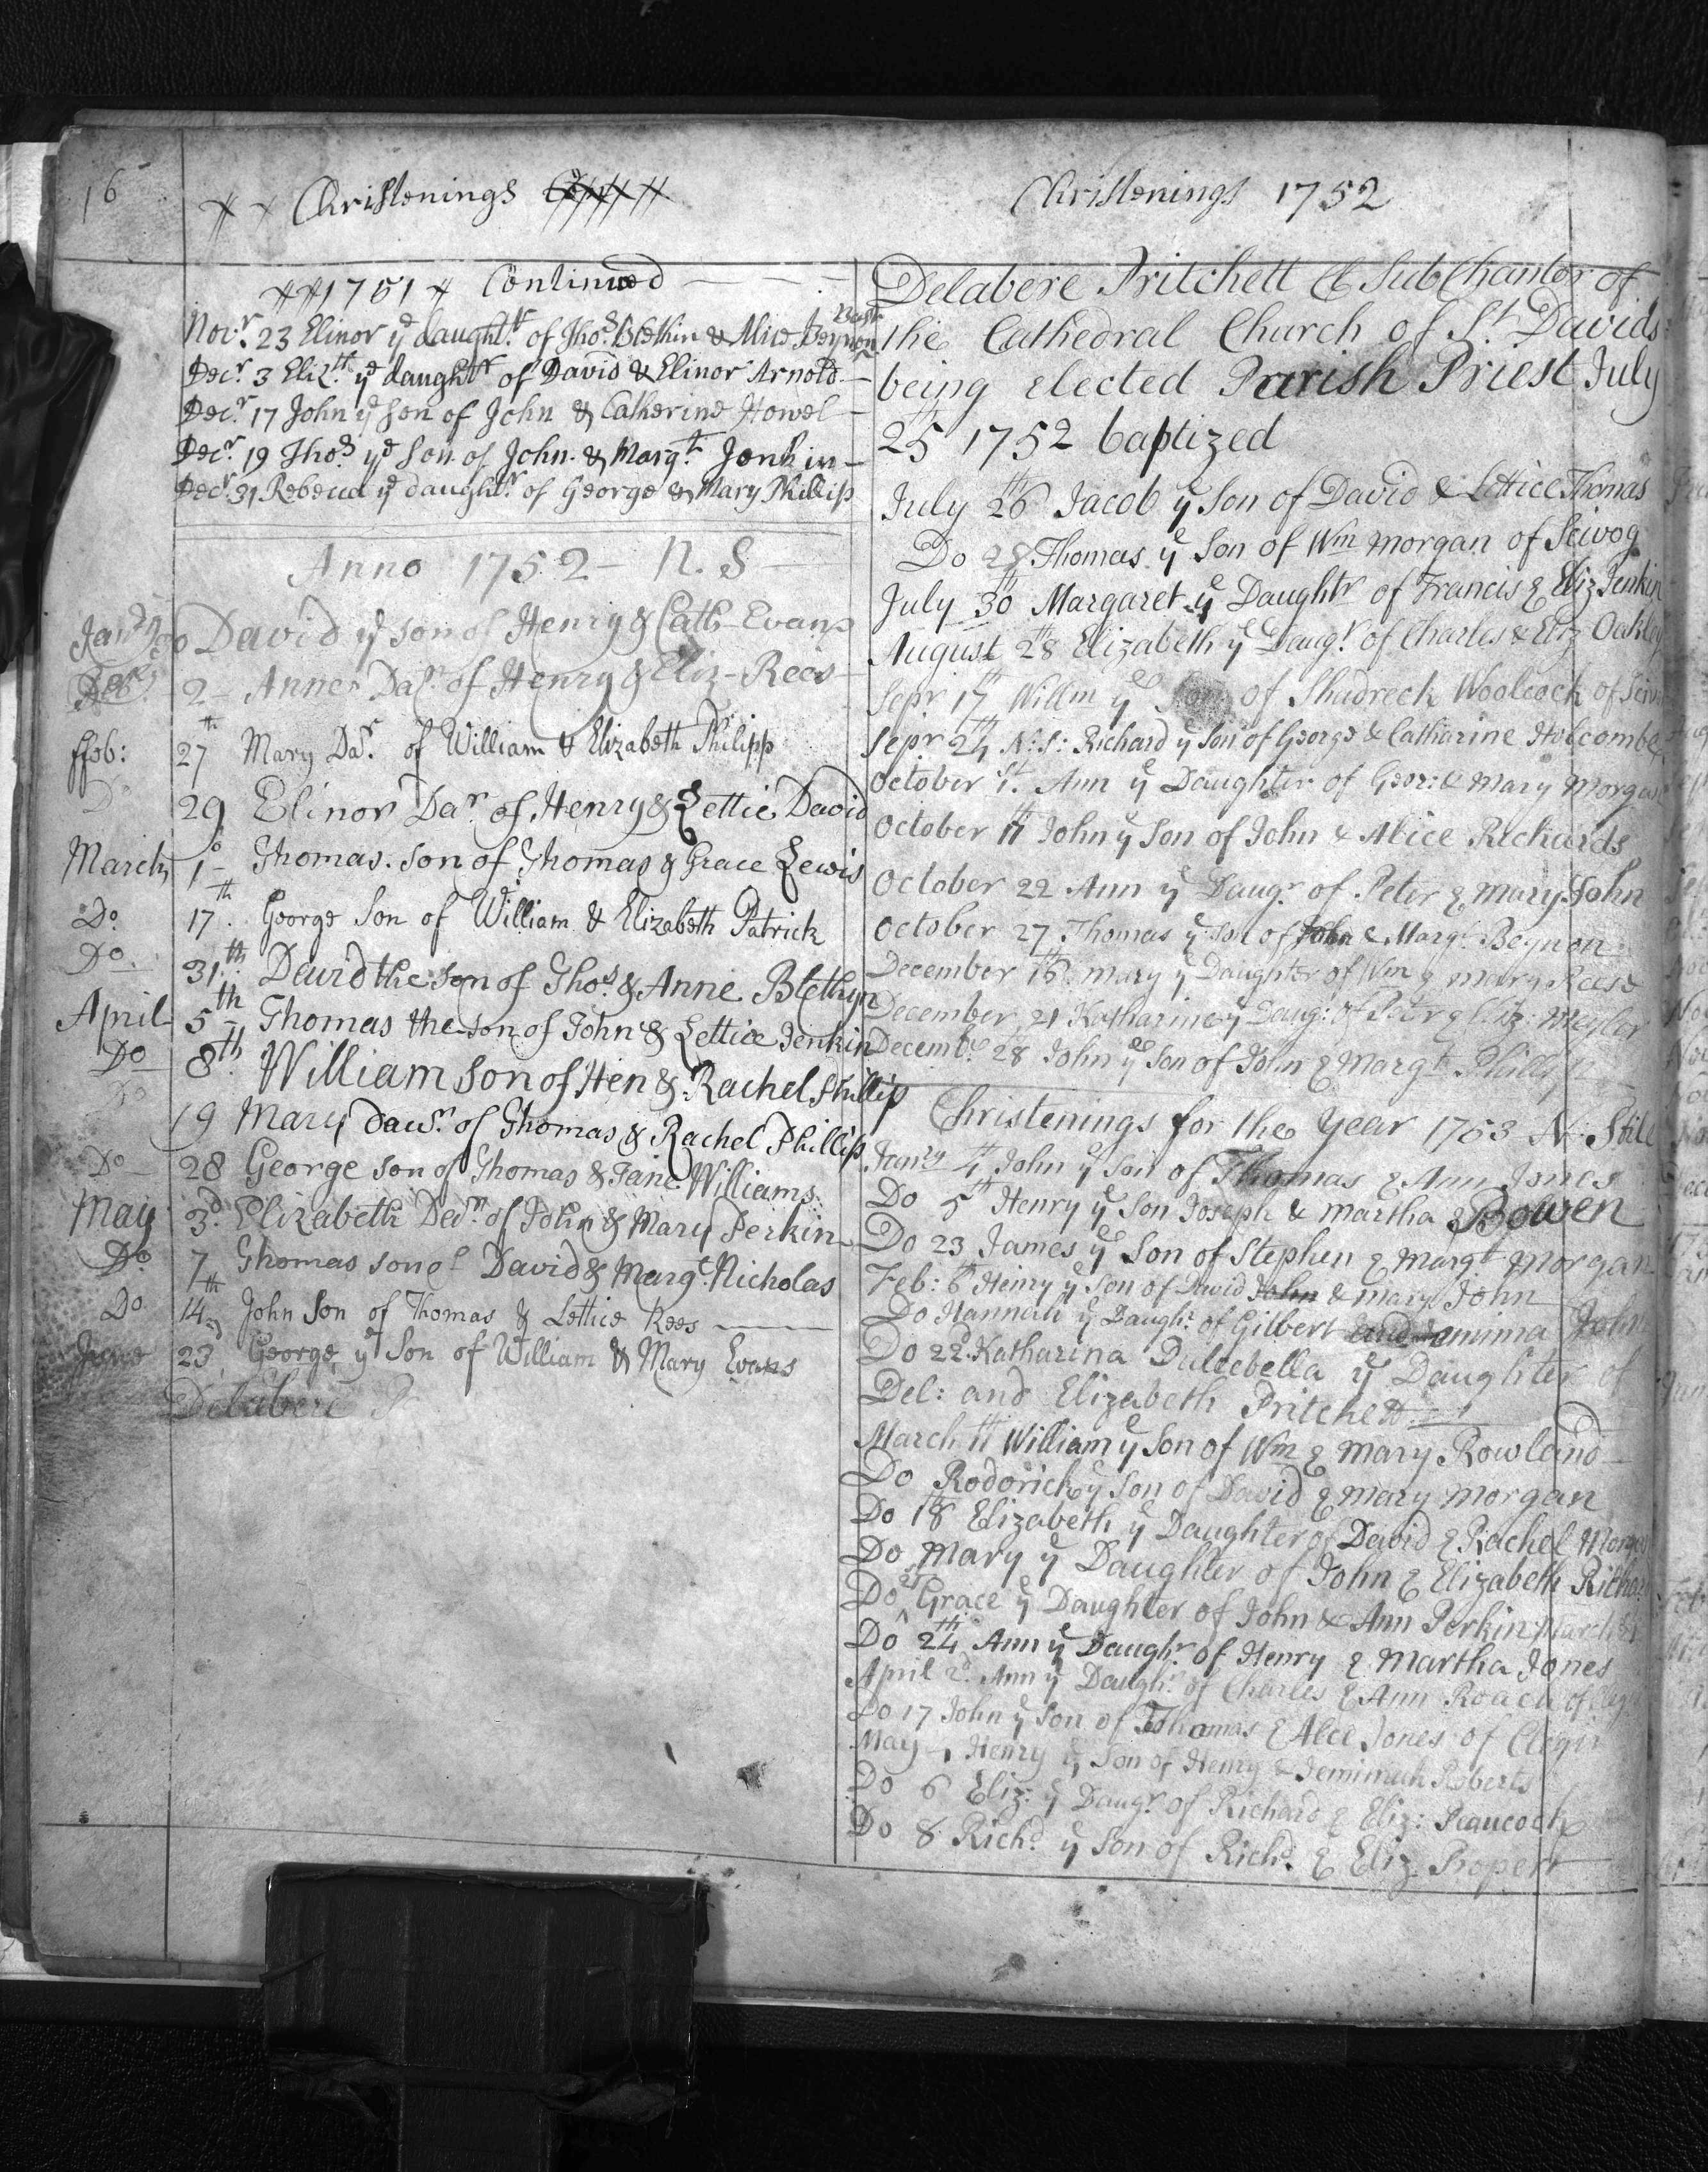 16
Christenings
1751 Continued
Novr. 23 Elinor ye daughtr. of Thos. Blethin & Alice Beynon Bast
Decr. 3 Elizth. ye daughtr of David & Elinor Arnold
Decr. 17 John ye Son of John & Catherine Howel
Decr. 19 Thos. ye Son of John & Margt. Jenkin
Decr. 31 Rebecca ye daughtr. of George & Mary Phillip
Anno 1752 - N. S
Janry 30 David ye son of Henry & Cath- Evans
2 - Anne Dar. of Henry & Eliz - Rees
ffeb: 27th Mary Dar. of William & Elizabeth Philipp
Do 29 Elinor Dar of Henry & Lettie David
March 1 Thomas son of Thomas & Grace Lewis
Do. 17th. George Son of William & Elizabeth Patrick
Do. 31th David the son of Thos. & Anne Blethyn
April 5th Thomas the son of John & Lettice Jenkin
Do 8th. William Son of Hen & Rachel Phillip
Do 19 Mary Dawr. of Thomas & Rachel Phillip
Do 28 George son of Thomas & Jane Williams
May 3d. Elizabeth Dawr. of John & Mary Perkin
Do 7 Thomas son of David & Margt. Nicholas
Do 14th John Son of Thomas & Lettice Rees
June 23 George ye Son of William & Mary Evans
Delabere P
Christenings 1752
Delabere Pritchett Sub Chantor of
the Cathedral Church of St. Davids
being elected Parish Priest July
25th 1752 baptized
July 26th Jacob ye Son of David & Lettice Thomas
Do 28 Thomas ye Son of Wm Morgan of Scivog
July 30th Margaret ye Daughtr of Francis & Eliz Jenkin
August 28th Elizabeth ye Daugr. of Charles & Eliz Oakley
Sepr 17th Willm ye Son of Shadreck Woolcock of
Sepr 24th N:S: Richard ye Son of George & Catharine Holcombe
October 1st. Ann ye Daughter of Geor: & Mary Morgan
October 17 John ye Son of John & Alice Richards
October 22 Ann ye Daugr. of Peter & Mary John
October 27 Thomas ye Son of John & Margt. Beynon
December 16th Mary ye Daughter of Wm & Mary Reese
December 21 Katharine ye Daug: of Peter & Eliz: Meyler
Decembr. 28 John ye Son of John & Margt Phillip
Christenings for the Year 1753 N: Stile
Janry 4th John ye Son of Thomas & Ann Jones
Do 5th Henry ye Son Joseph & Martha Bowen
Do 23 James ye Son of Stephen & Margt Morgan
Feb: 6th Henry ye Son of David John & Mary John
Do Hannah ye Daughr. of Gilbert and Jemima John
Do 22d. Katharina Dulcebella ye Daughter of
Del: and Elizabeth Pritchett
March 11 William ye Son of Wm & Mary Rowland
Do Roderick ye Son of David & Mary Morgan
Do 18th Elizabeth ye Daughter of David & Rachel
Do Mary ye Daughter of John & Elizabeth
Do 21 Grace ye Daughter of John & Ann Perkin March
Do 24th Ann ye Daughr. of Henry & Martha Jones
April 2d. Ann ye Daughr. of Charles & Ann Roach of
Do 17 John ye Son of Thomas & Alce Jones of Clegir
May 1 Henry ye Son of Henry & Jemimah Roberts
Do 6 Eliz: ye Daugr. of Richard & Eliz: Peaucock
Do 8 Richd. ye Son of Richd. & Eliz Propert